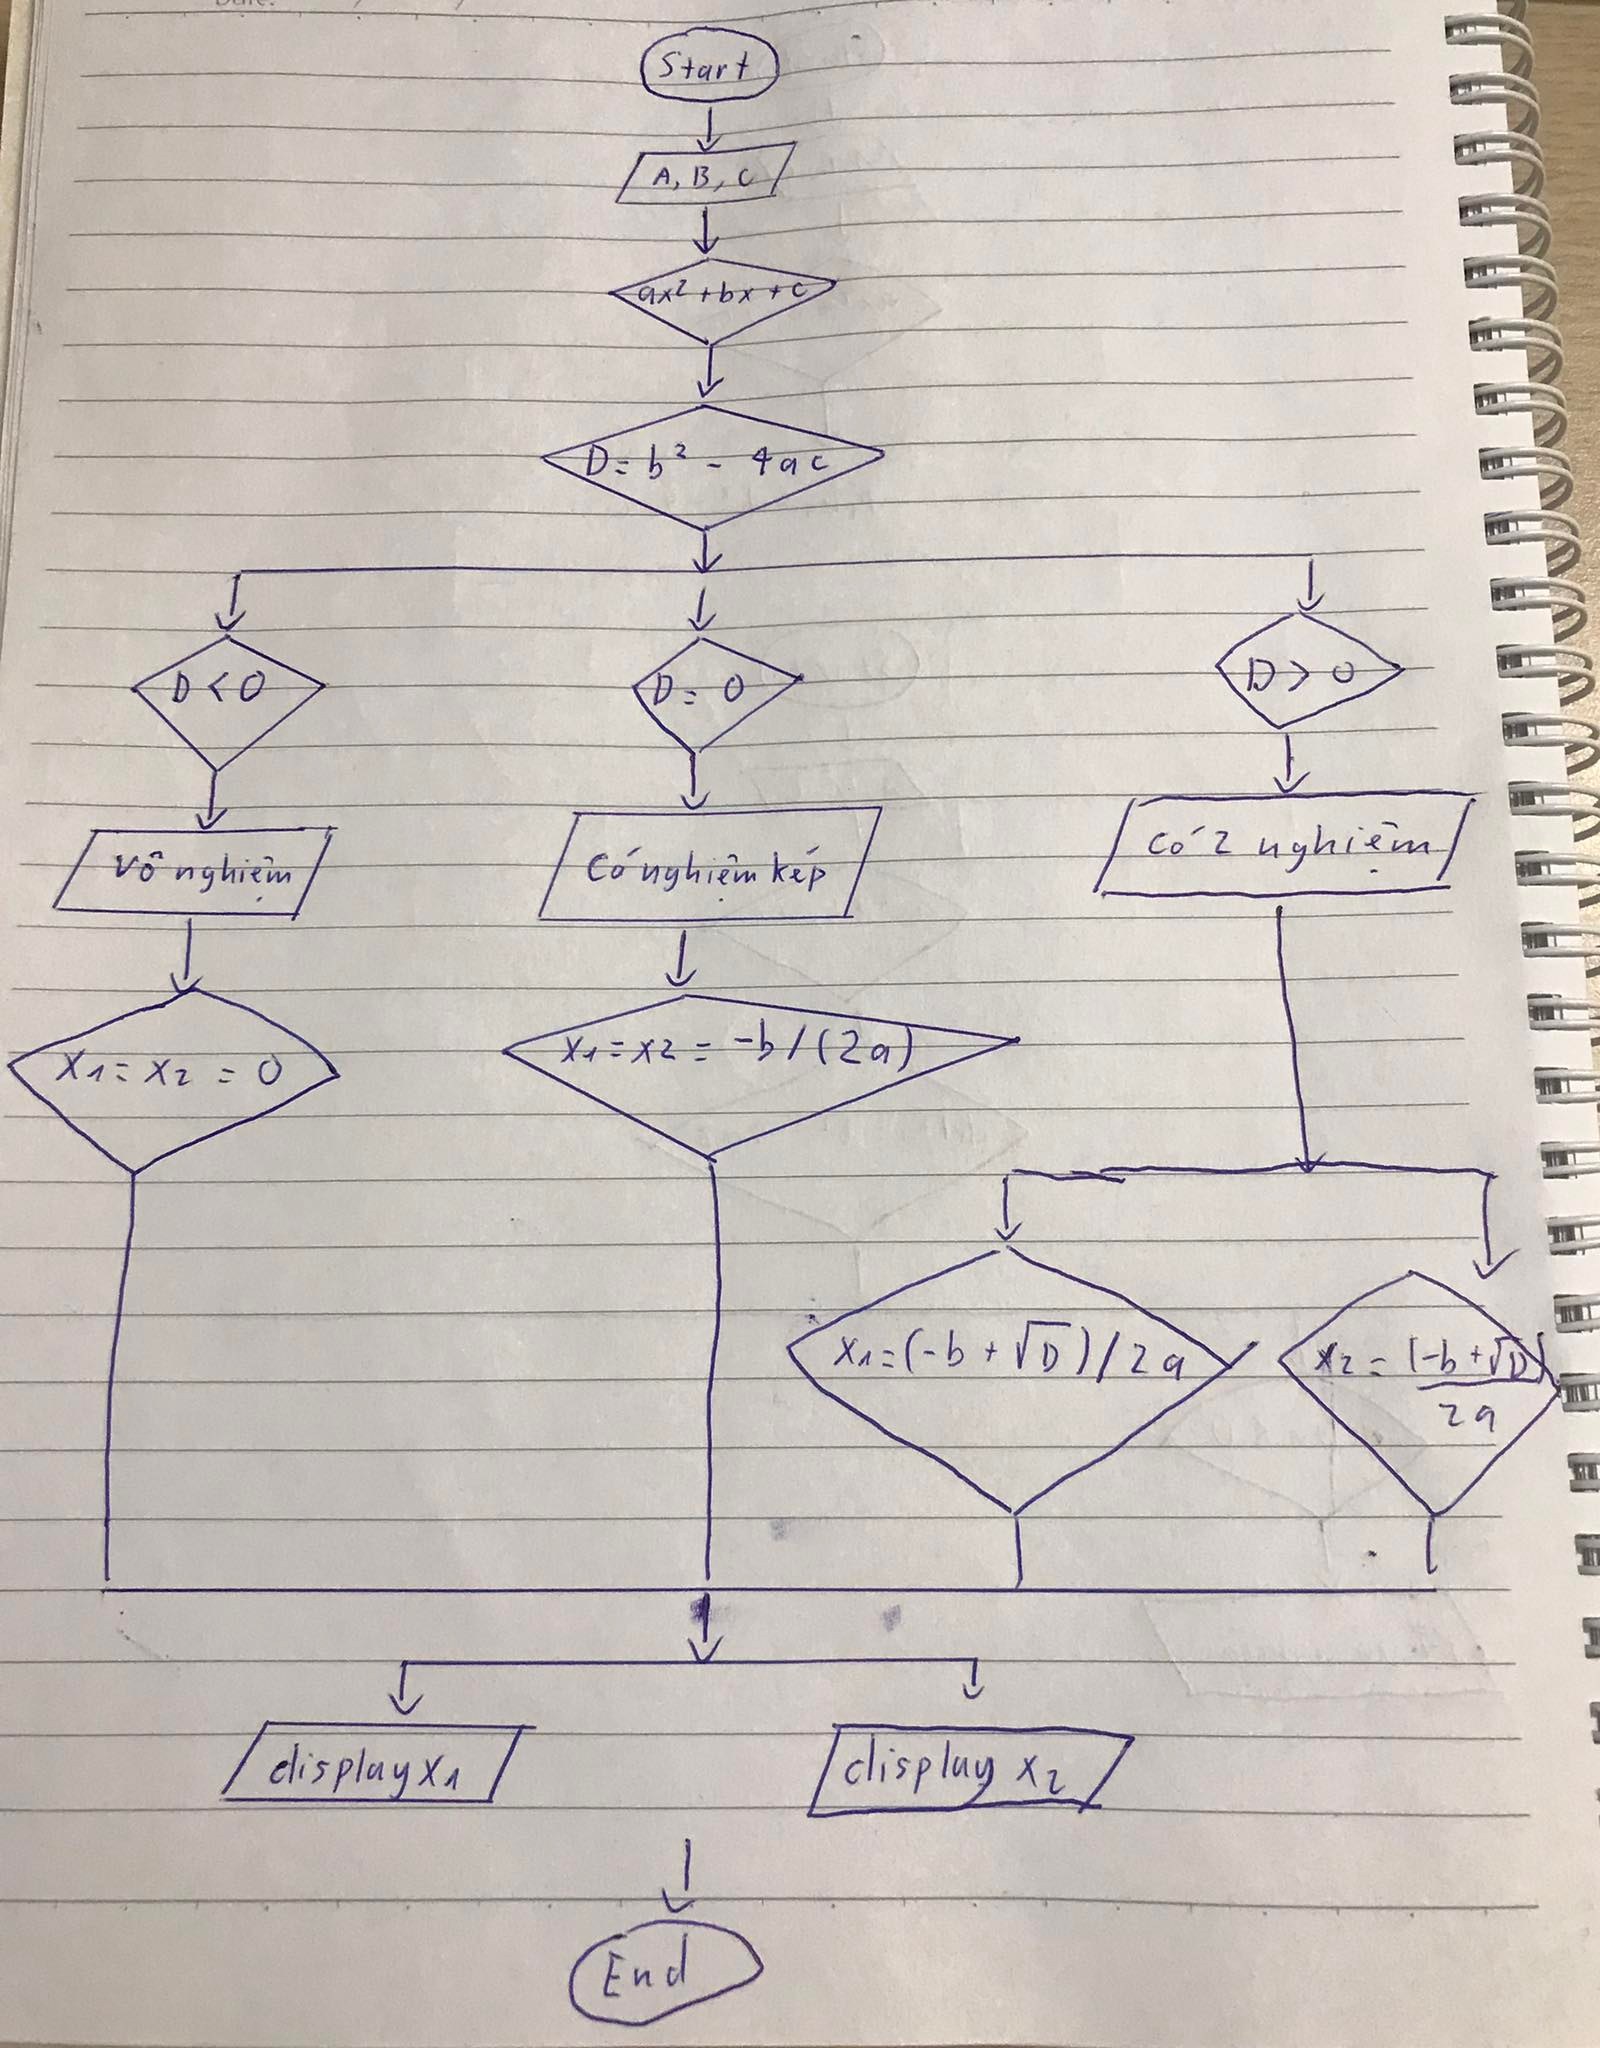 Date:
Start
A, B, C
ax² + bx + c
D = b² - 4ac
D < 0
D = 0
D > 0
Vô nghiệm
Có nghiệm kép
Có 2 nghiệm
x₁ = x₂ = 0
x₁ = x₂ = -b / (2a)
x₁ = (-b + √D) / 2a
x₂ = (-b + √D)
2a
display x₁
display x₂
End